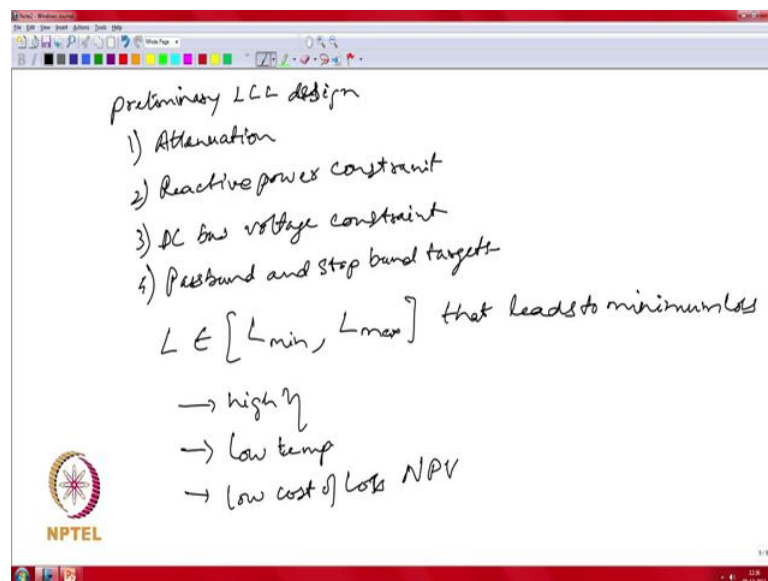 Note2 - Windows Journal
File Edit View Insert Actions Tools Help
Whole Page
preliminary LCL design
1) Attenuation
2) Reactive power constraint
3) DC bus voltage constraint
4) Passband and stop band targets
L ∈ [Lmin, Lmax] that leads to minimum loss
→ high η
→ low temp
→ low cost of loss NPV
NPTEL